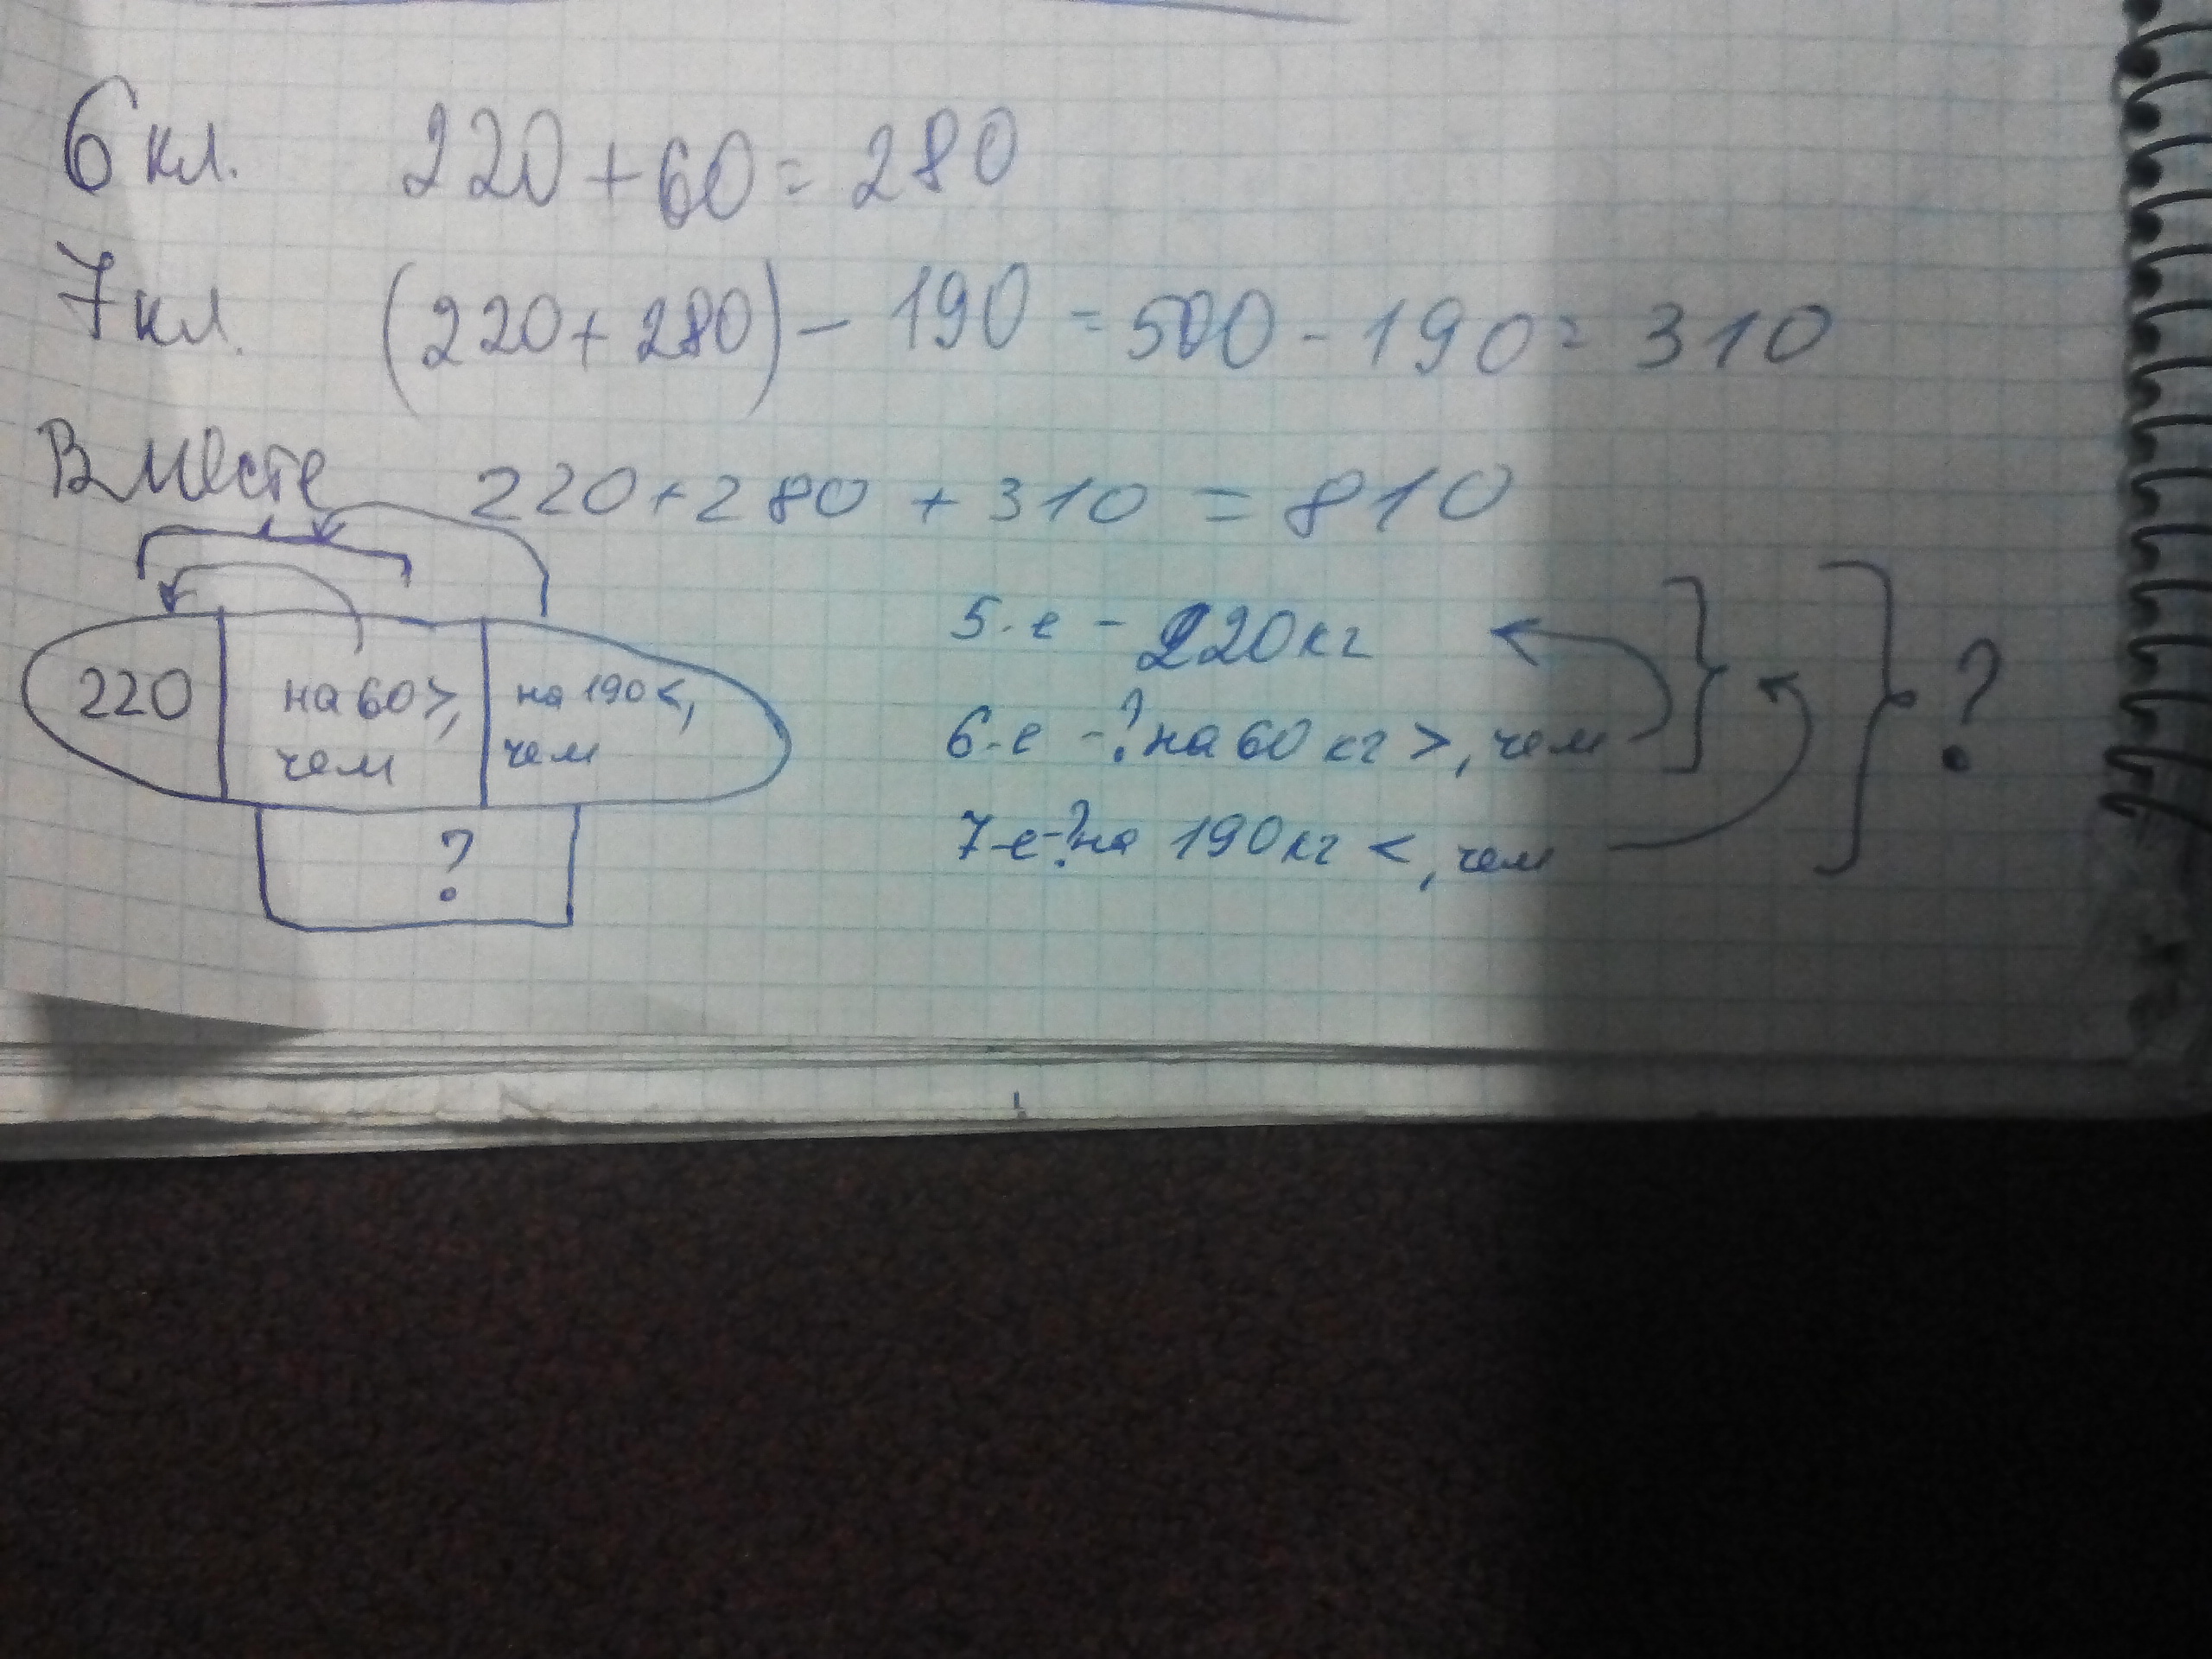 6 кл. 220 + 60 = 280
7 кл. (220 + 280) - 190 = 500 - 190 = 310
Вместе 220 + 280 + 310 = 810
220
на 60 >,
чем
на 190 <,
чем
?
5-е - 220 кг
6-е - ? на 60 кг >, чем
7-е - ? на 190 кг <, чем
?